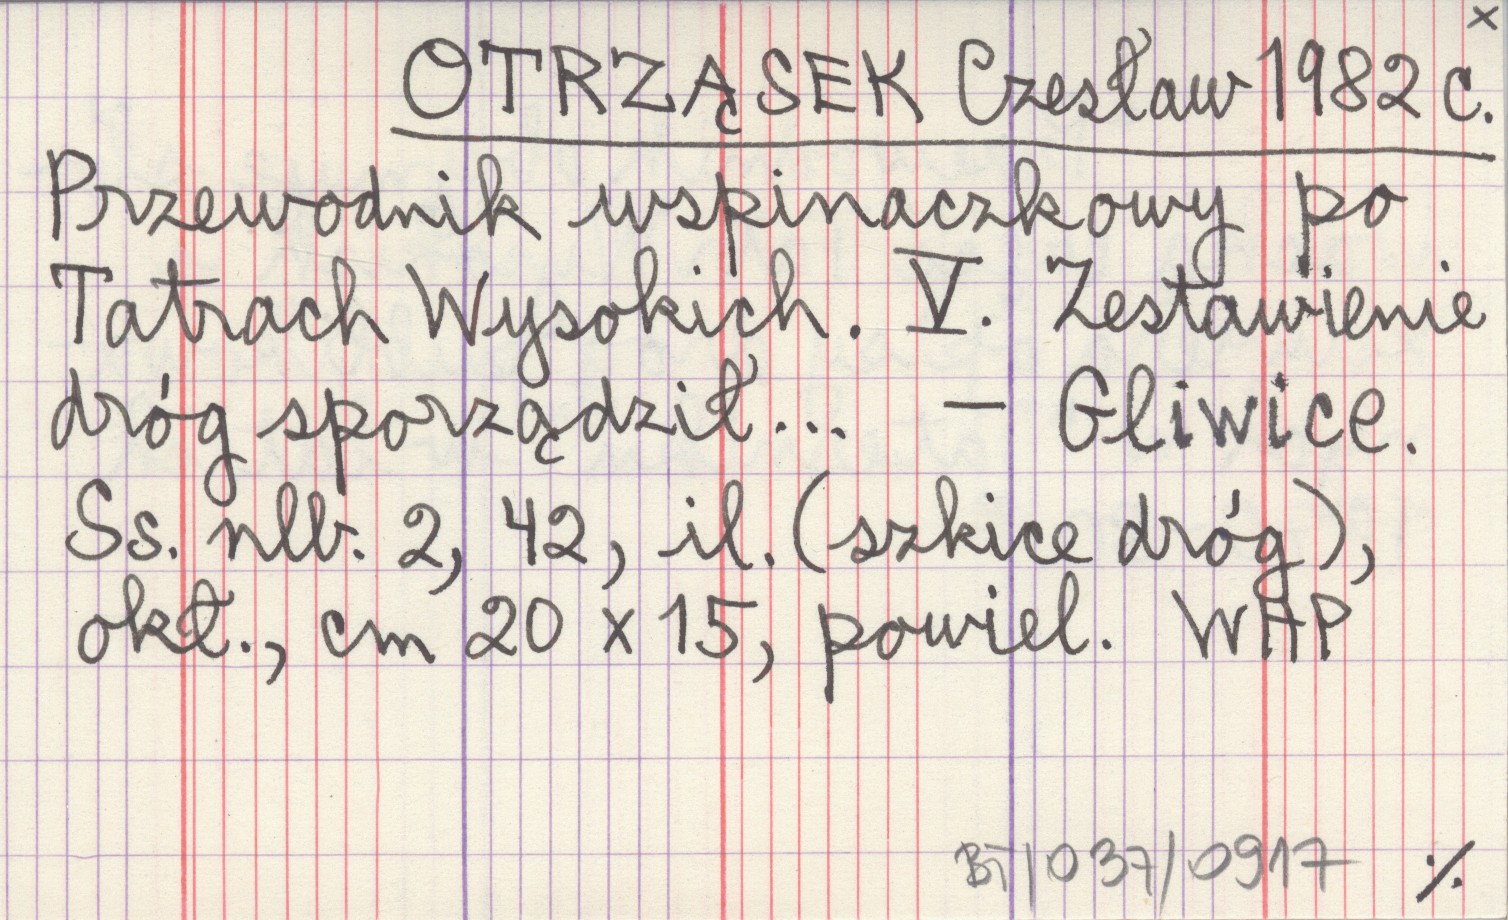 ×
OTRZĄSEK Czesław 1982 c.
Przewodnik wspinaczkowy po
Tatrach Wysokich. V. Zestawienie
dróg sporządził... — Gliwice.
Ss. nlb. 2, 42, il. (szkice dróg),
okł., cm 20 x 15, powiel. WAP
BT/037/0917 ./.